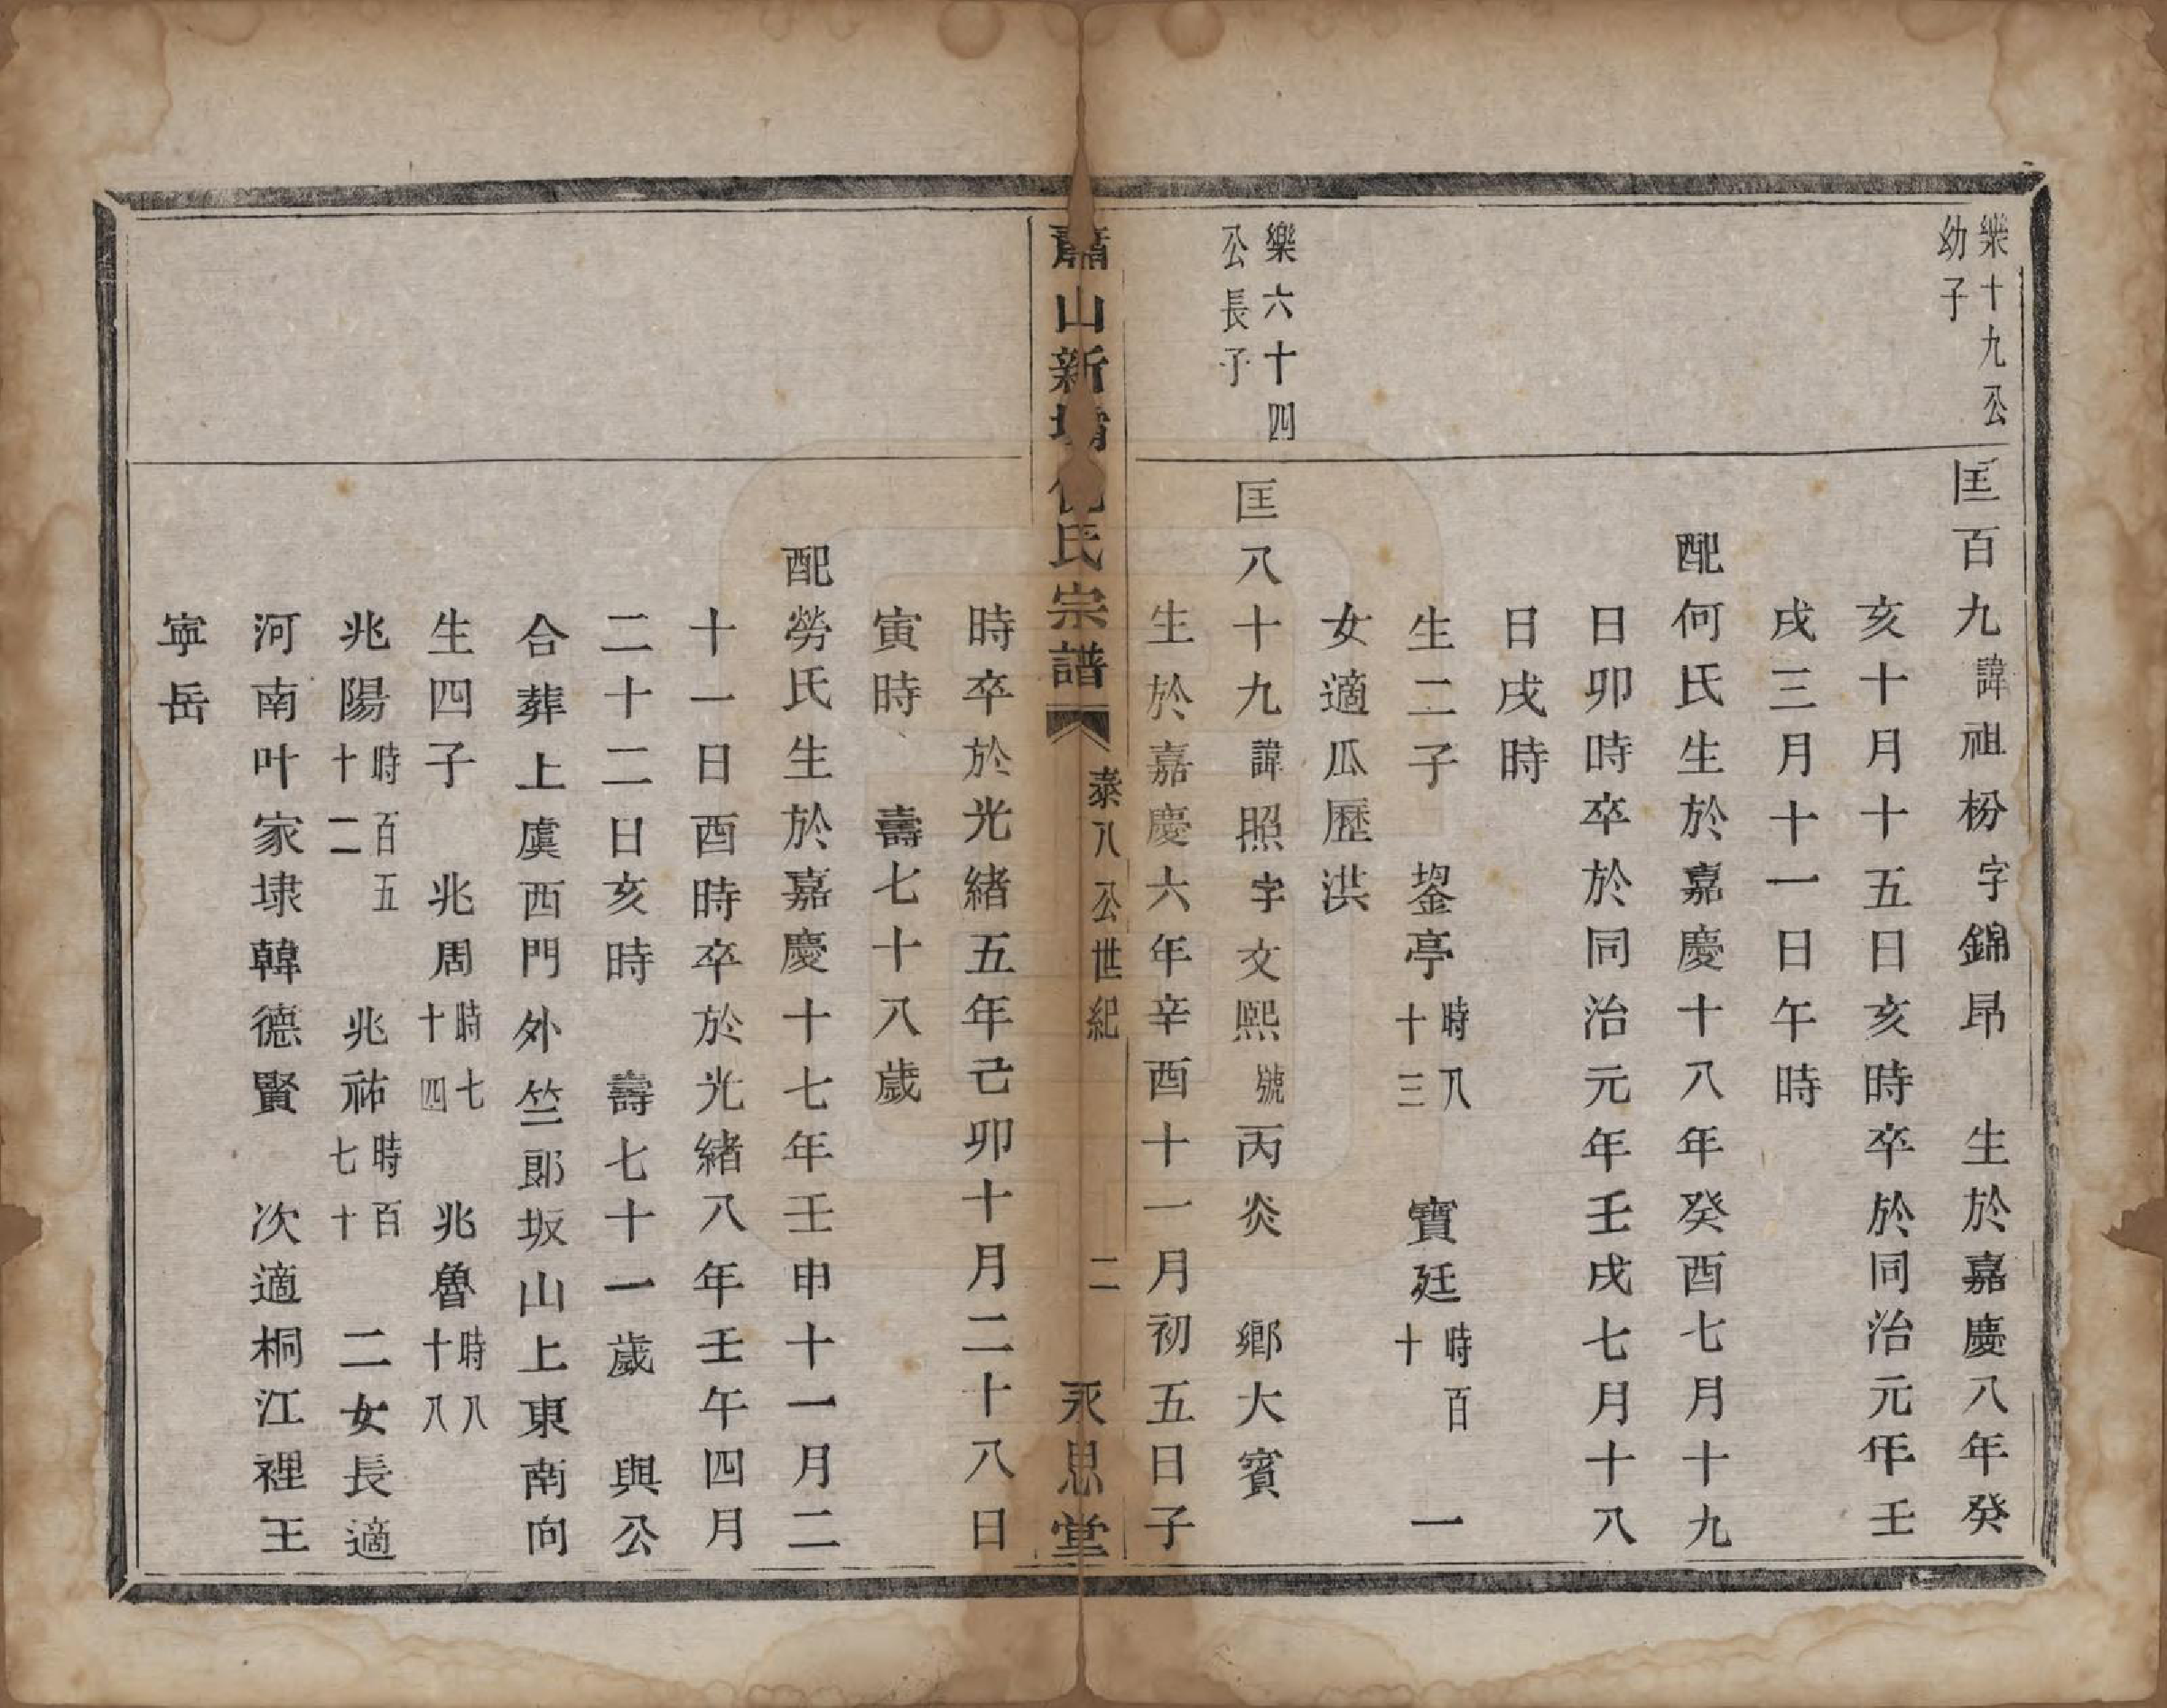 樂十九公
幼子
匡百九諱祖枌字錦昂　生於嘉慶八年癸
亥十月十五日亥時卒於同治元年壬
戌三月十一日午時
配何氏生於嘉慶十八年癸酉七月十九
日卯時卒於同治元年壬戌七月十八
日戌時
生二子　鋆亭時八十三　寶廷時百十　一
女適瓜歷洪
樂六十四
公長子
匡八十九諱照字文熙號丙炎　鄉大賓
生於嘉慶六年辛酉十一月初五日子
蕭山新墻倪氏宗譜　泰八公世紀　二　永思堂
時卒於光緒五年己卯十月二十八日
寅時　壽七十八歲
配勞氏生於嘉慶十七年壬申十一月二
十一日酉時卒於光緒八年壬午四月
二十二日亥時　壽七十一歲　與公
合葬上虞西門外竺郎坂山上東南向
生四子　兆周時七十四　兆魯時八十八
兆陽時百五十二　兆祐時百七十　二女長適
河南叶家埭韓德賢　次適桐江裡王
寧岳